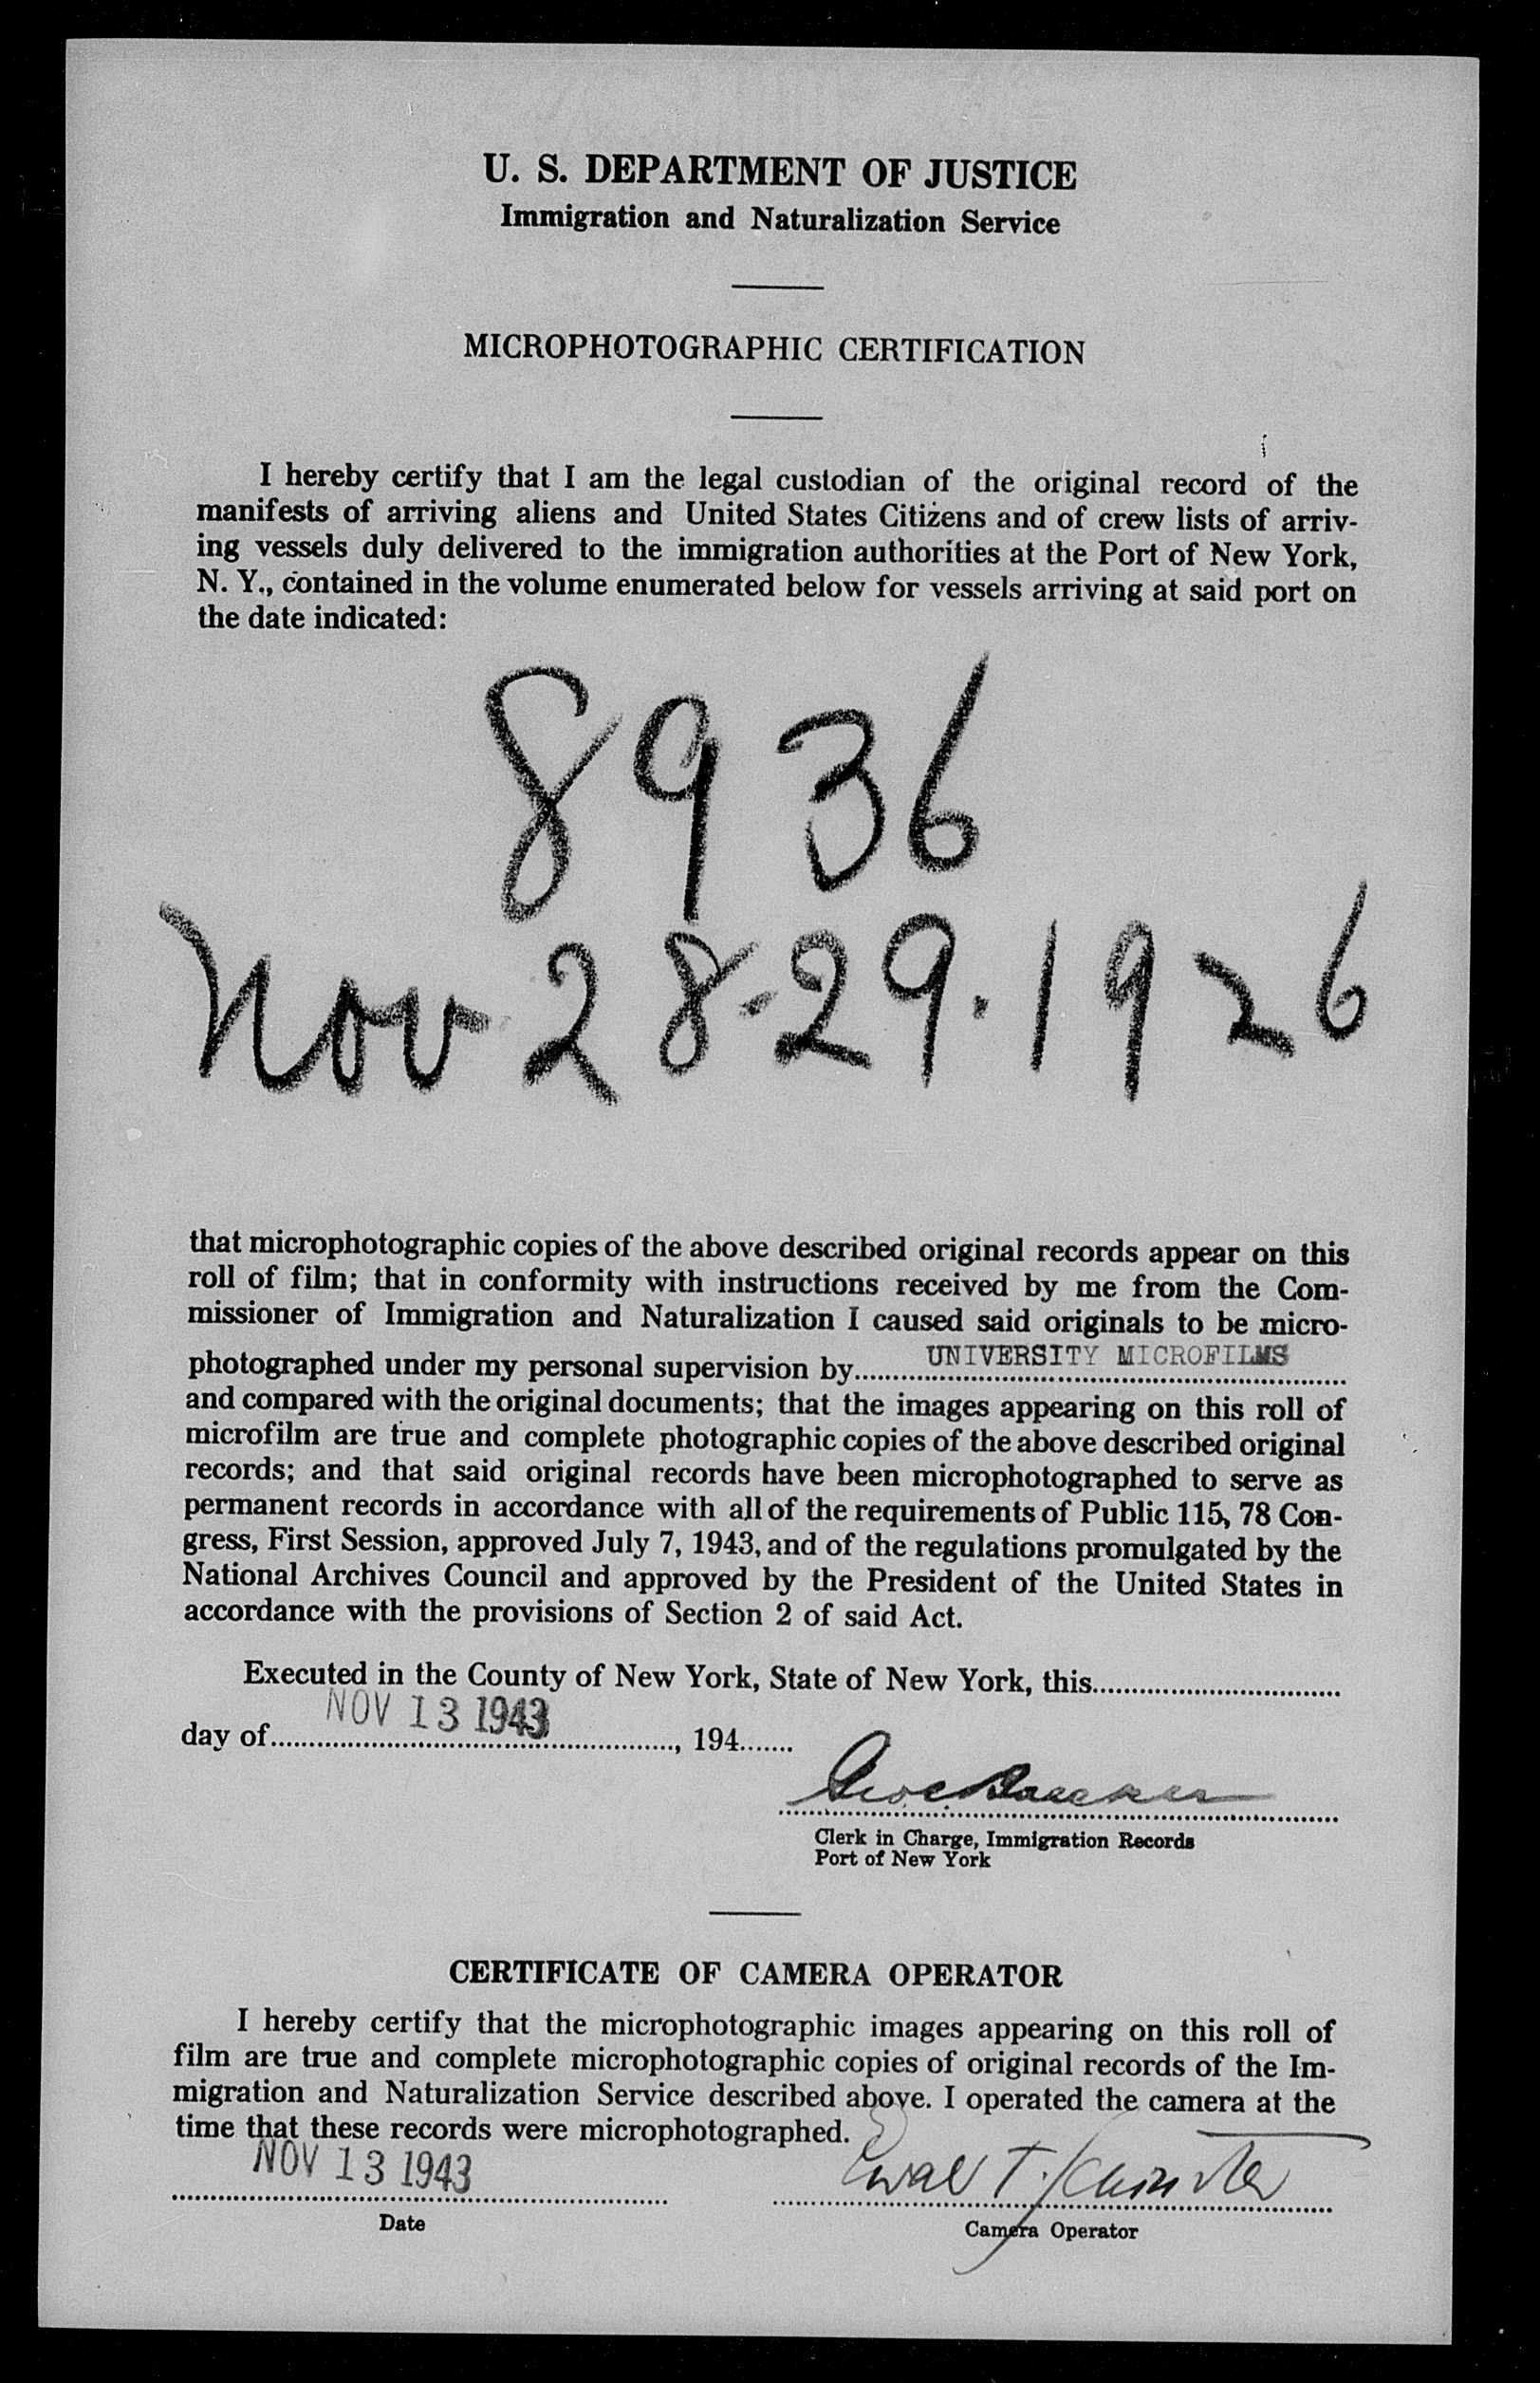 U. S. DEPARTMENT OF JUSTICE
Immigration and Naturalization Service
MICROPHOTOGRAPHIC CERTIFICATION
I hereby certify that I am the legal custodian of the original record of the
manifests of arriving aliens and United States Citizens and of crew lists of arriv-
ing vessels duly delivered to the immigration authorities at the Port of New York,
N. Y., contained in the volume enumerated below for vessels arriving at said port on
the date indicated:
8936
Nov 28-29.1926
that microphotographic copies of the above described original records appear on this
roll of film; that in conformity with instructions received by me from the Com-
missioner of Immigration and Naturalization I caused said originals to be micro-
photographed under my personal supervision by UNIVERSITY MICROFILMS
and compared with the original documents; that the images appearing on this roll of
microfilm are true and complete photographic copies of the above described original
records; and that said original records have been microphotographed to serve as
permanent records in accordance with all of the requirements of Public 115, 78 Con-
gress, First Session, approved July 7, 1943, and of the regulations promulgated by the
National Archives Council and approved by the President of the United States in
accordance with the provisions of Section 2 of said Act.
Executed in the County of New York, State of New York, this
day of NOV 13 1943, 194
Clerk in Charge, Immigration Records
Port of New York
CERTIFICATE OF CAMERA OPERATOR
I hereby certify that the microphotographic images appearing on this roll of
film are true and complete microphotographic copies of original records of the Im-
migration and Naturalization Service described above. I operated the camera at the
time that these records were microphotographed.
NOV 13 1943
Date
Camera Operator